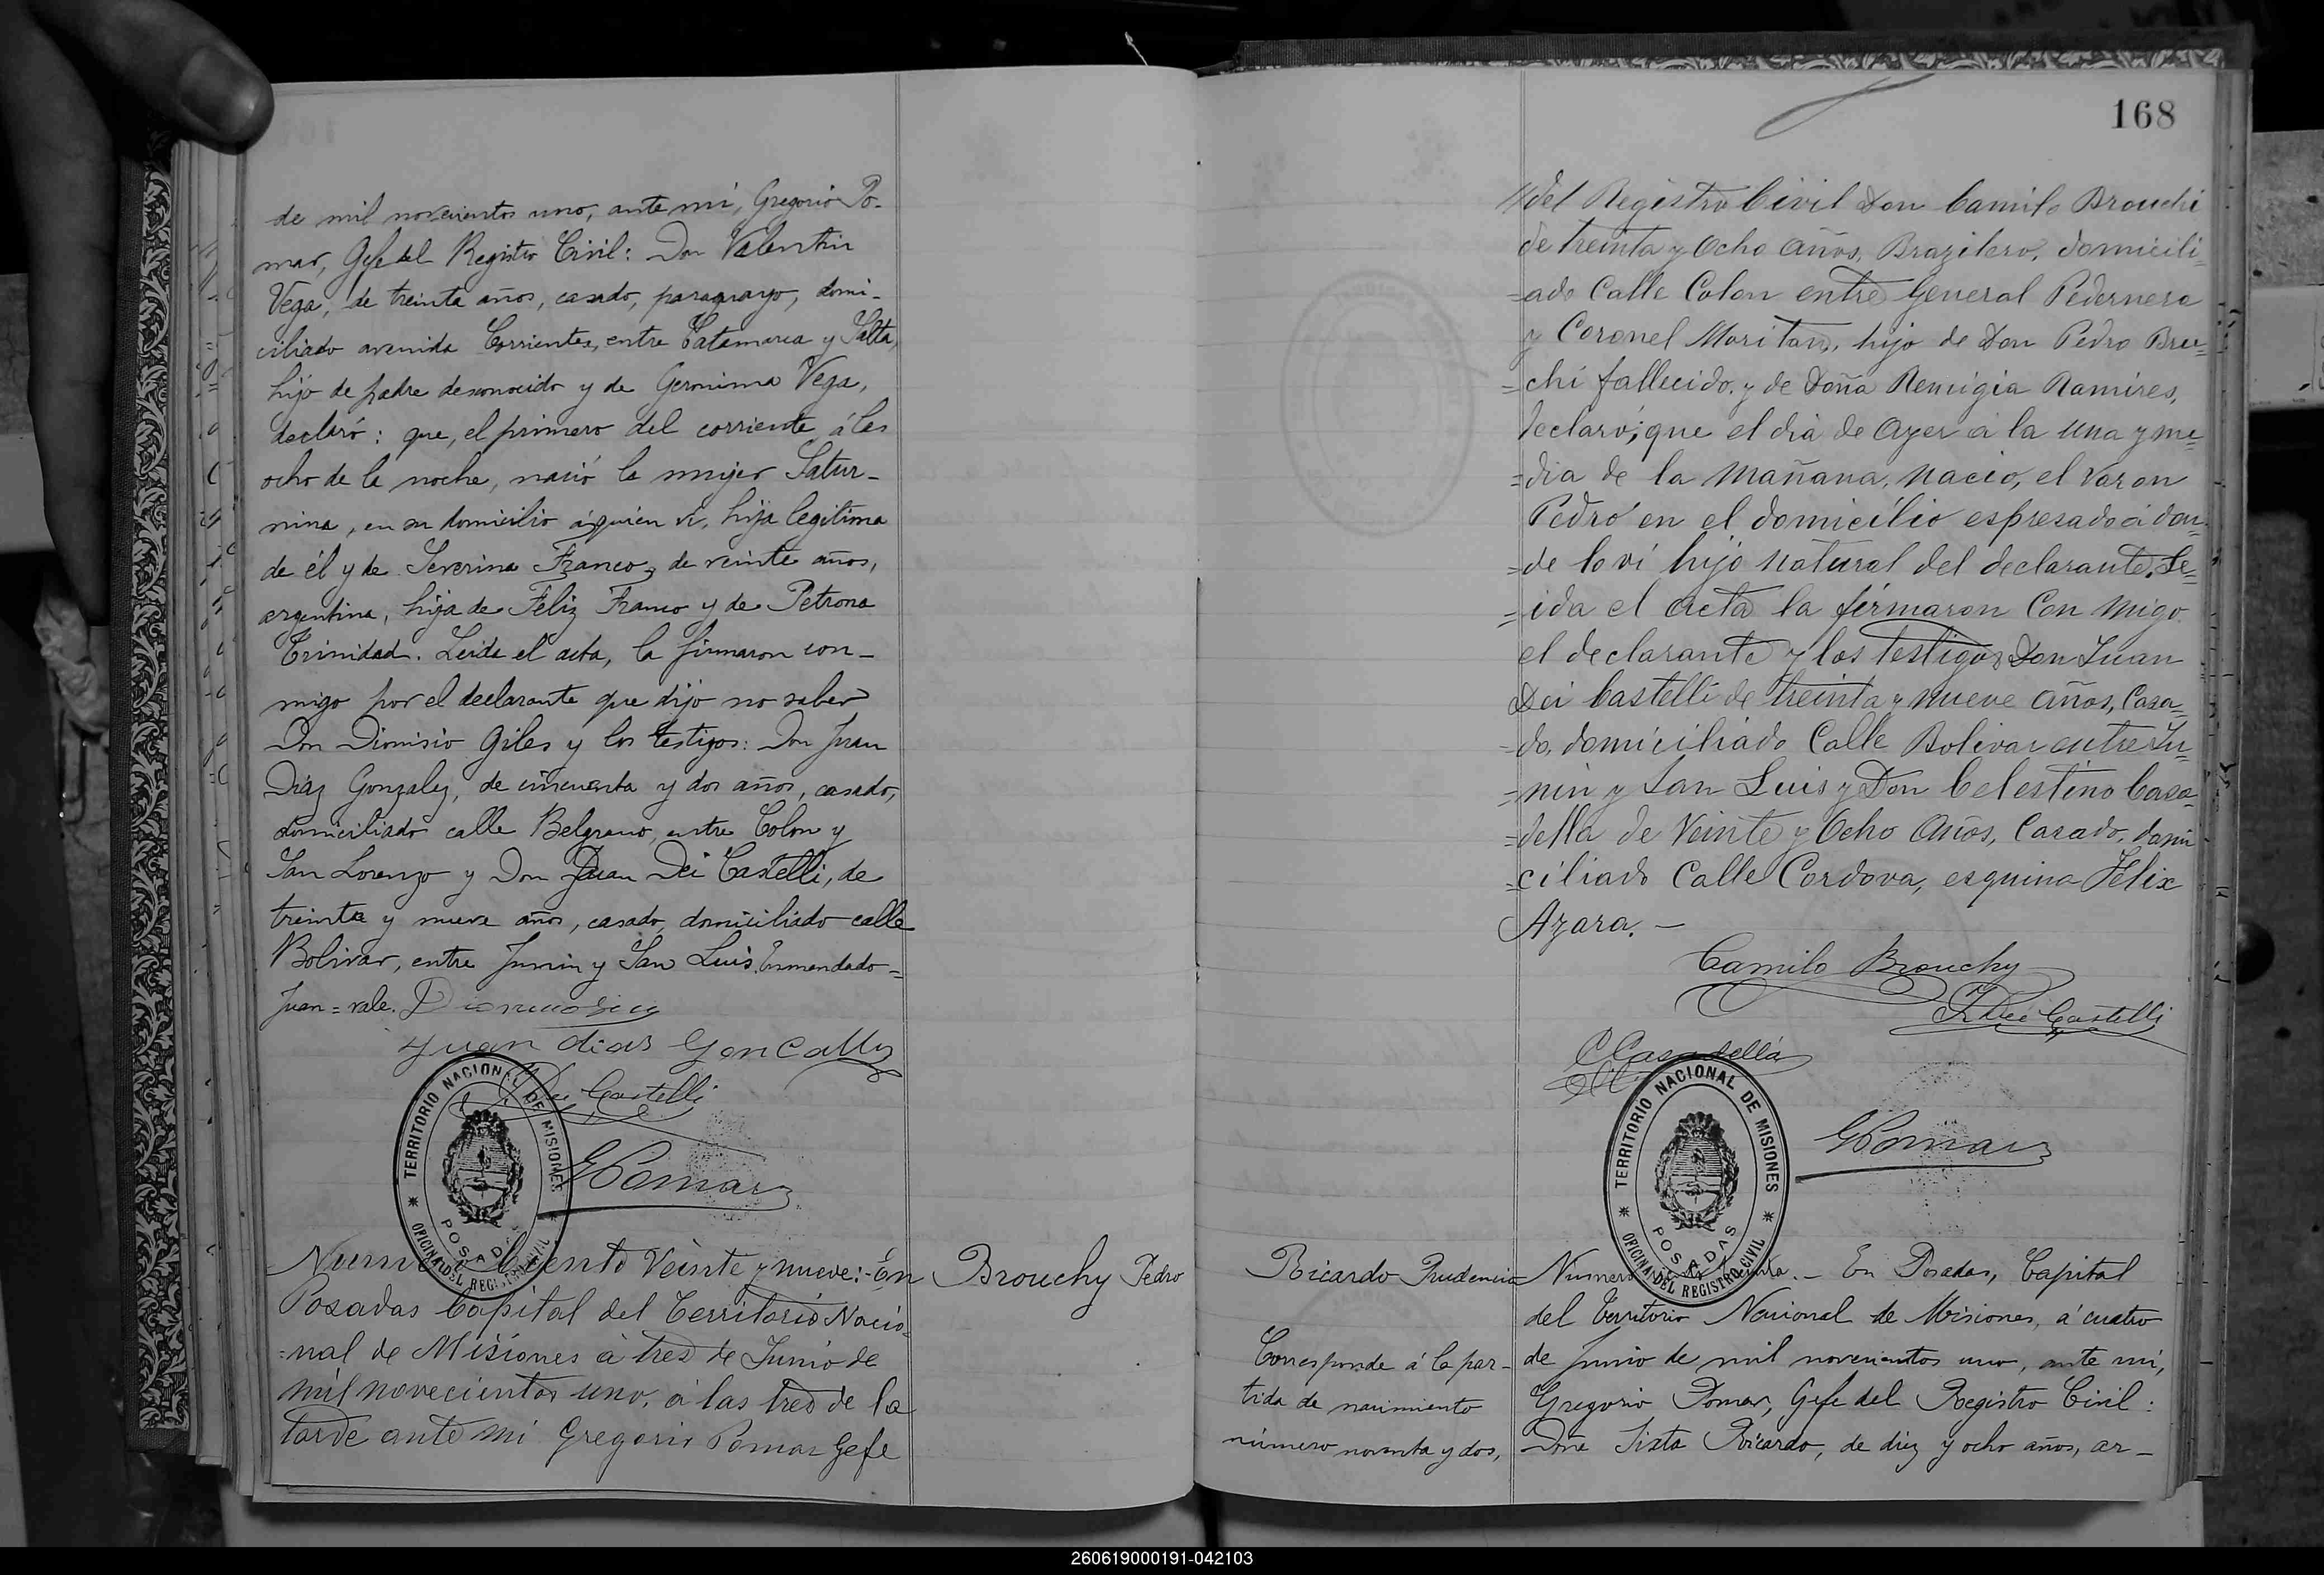 de mil novecientos uno, ante mí, Gregorio Po-
mar, Gefe del Registro Civil: Don Valentin
Vega, de treinta años, casado, paraguayo, domi-
ciliado avenida Corrientes, entre Catamarca y Salta,
hijo de padre desconocido y de Geronima Vega,
declaró: que, el primero del corriente á las
ocho de la noche, nació la mujer Satur-
nina, en su domicilio á quien ví, hija legitima
de él y de Severina Franco, de veinte años,
argentina, hija de Feliz Franco y de Petrona
Trinidad. Leida el acta, la firmaron con-
migo por el declarante que dijo no saber
Don Dionisio Giles y los testigos: Don Juan
Diáz Gonzalez, de cincuenta y dos años, casado,
domiciliado calle Belgrano, entre Colon y
San Lorenzo y Don Juan Dei Castelli, de
treinta y nueve años, casado, domiciliado calle
Bolivar, entre Junin y San Luis. Enmendado=
Juan=vale.
Juan dias Goncallez
J Dei Castelli
GPomar
TERRITORIO NACIONAL DE MISIONES
POSADAS
OFICINA DEL REGISTRO CIVIL
Numero Ciento Veinte y nueve:- En
Posadas Capital del Territorio Nacio-
=nal de Misiones á tres de Junio de
mil novecientos uno, á las tres de la
tarde ante mi Gregorio Pomar Gefe
Brouchy Pedro
168
//del Registro Civil Don Camilo Brouchi
de treinta y Ocho años, Brazilero, domicili=
=ado Calle Colon entre General Pedernera
y Coronel Moritan, hijo de Don Pedro Brou=
=chi fallecido. y de Doña Remigia Ramires,
declaró; que el dia de Ayer á la una y me=
=dia de la Mañana, nacio, el Varon
Pedro en el domicilio espresado á don-
=de lo ví hijo natural del declarante. Le=
=ida el acta la firmaron Con Migo
el declarante y los testigos Don Juan
Dei Castelli de treinta y nueve años, Casa=
=do, domiciliado Calle Bolivar entre Ju=
=nin y San Luis y Don Celestino Casa=
=della de Veinte y Ocho Años, Casado, domi
=ciliado Calle Cordova, esquina Felix
Azara.-
Camilo Brouchy
J Dei Castelli
C Casadella
TERRITORIO NACIONAL DE MISIONES
POSADAS
OFICINA DEL REGISTRO CIVIL
GPomar
Ricardo Prudencio
Corresponde á la par-
tida de nacimiento
número noventa y dos,
Numero .- En Posadas, Capital
del Territorio Nacional de Misiones, á cuatro
de Junio de mil novecientos uno, ante mí,
Gregorio Pomar, Gefe del Registro Civil:
Dña Sixta Ricardo, de diez y ocho años, ar-
260619000191-042103